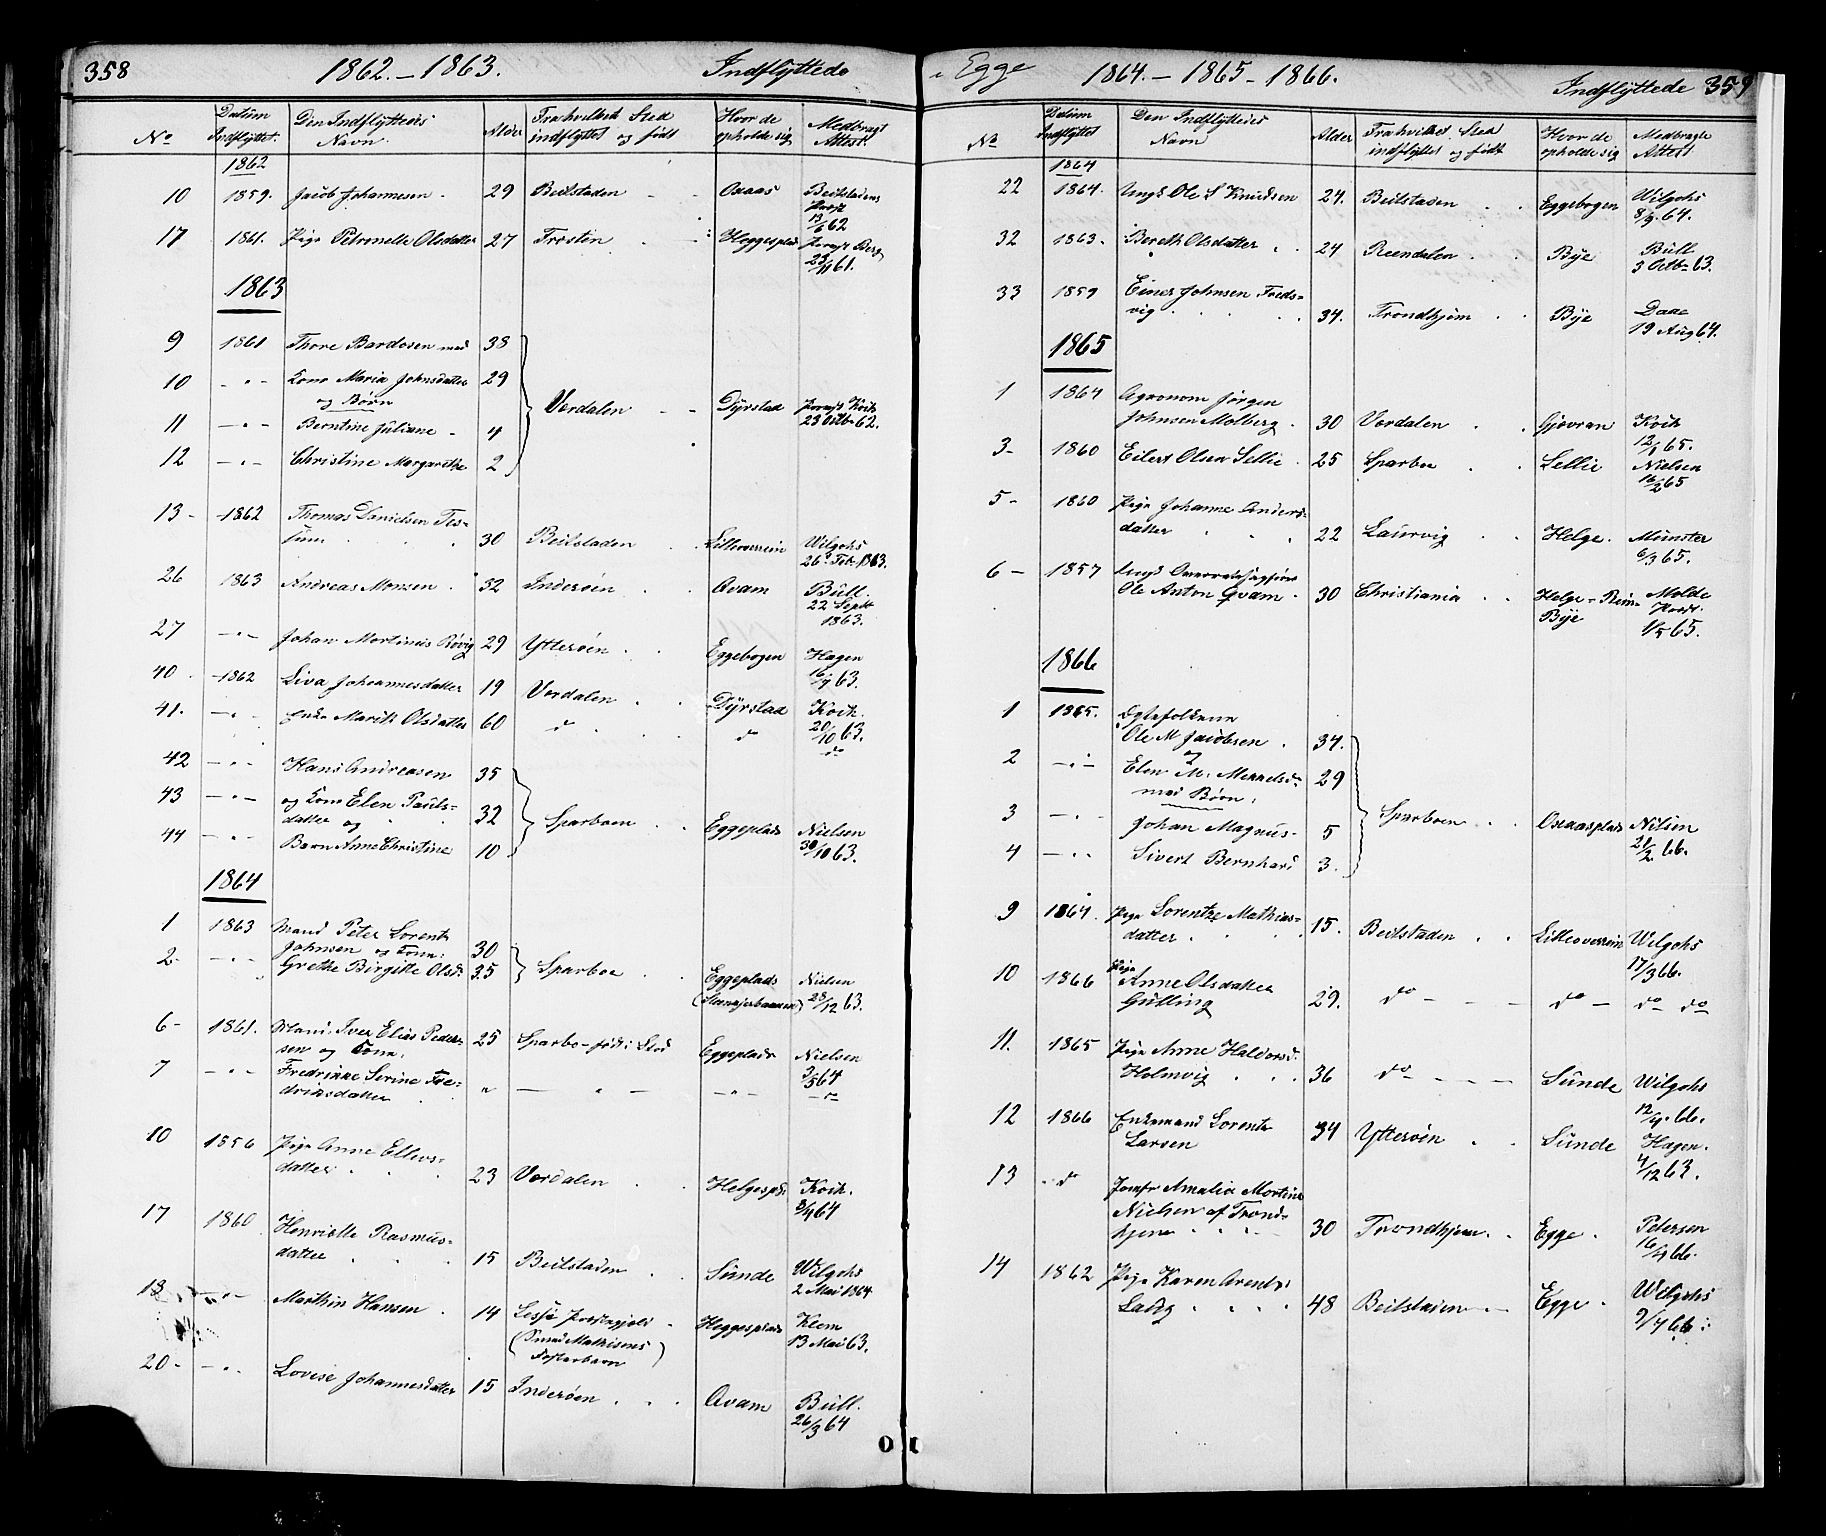 358 1862.-1863. Indflyttede
No Datum Indflyttet. Den Indflyttedes Navn. Alder Fra hvilket Sted indflyttet og født Hvor de opholde sig Medbragt Attest.
1862
10 1859. Jacob Johannesen 29 Beitstaden Oxaas Beitstadens Præst 13/6 62
17 1861. Pige Petronelle Olsdatter 27 Frosten Heggesplads Præst Berg 23/11 61.
1863
9 1861 Thore Bardosen med 38
10 -"- Kone Maria Johnsdatter 29
og Børn Værdalen Dyrstad Præst Koch 23 Octb 62.
11 -"- Berntine Juliane 4
12 -"- Christine Margrethe 2
13 - 1862 Thomas Danielsen Tes-
sum 30 Beitstaden Lilleoverein Wilgohs 26 Feb 1863.
26 1863 Andreas Monsen 32 Inderøen Qvam Bull 22 Septb 1863.
27 -"- Johan Mortinus Røvig 29 Ytterøen Eggebogen Hagen 16/7 63.
40 -1862 Liva Johannesdatter 19 Værdalen Dyrstad Koch 20/10 63.
41. -"- Enke Marit Olsdatter 60 do do do
42 -"- Hans Andreasen 35
43 -"- og Kone Elen Pauls-
datter og 32 Sparboen Eggeplads Nielsen 30/10 63.
44 -"- Barn Anne Christine 10
1864
1 1863 Mand Peter Lorents
Johnsen og Kone: 30
2 -"- Grethe Birgitte Olsd: 35 Sparboe Eggeplads Nielsen 23/12 63.
6- 1861. Mand. Iver Elias Peder-
sen og Kone. 25 Sparbo - født i Stod Eggeplads Nielsen 3/5 64
7 -"- Fredrikke Serine Fre-
driksdatter " -"- -"- do
10 1856 Pige Anne Ellevs-
datter 23 Værdalen Helgespl: Koch. 8/4 64
17 1860 Henriette Rasmus-
datter 15 Beitstaden Sunde Wilgohs 2 Mai 1864
18 -"- Marthin Hansen 14 Lesje Præstegjeld Heggesplads Klem 13 Mai 63.
(Smed Mathisens Fosterbarn)
20- -"- Lovise Johannesdatter 15 Inderøen Qvam Bull. 26/3 64
i Egge 1864.-1865-1866. Indflyttede 359
No Datum Indflyttet Den Indflyttedes Navn Alder Fra hvilket Sted indflyttet og født Hvor de opholde sig Medbragte Attest
1864
22 1864. Ungk Ole S Knudsen 24. Beitstaden Eggebogen Wilgohs 8/9. 64.
32 1863. Bereth Olsdatter 24 Reendalen Bye Bull 3 Octb 63.
33 1859 Einer Johnsen Freds-
vig 34. Trondhjem Bye Daae 19 Aug 64.
1865
1 1864 Agronom Jørgen
Johnsen Molberg 30 Værdalen Gjævran Koch 12/1 65.
3- 1860 Eilert Olsen Sellie 25 Sparboe Sellie Nielsen 16/2 65
5- 1860 Pige Johanne Anders-
datter 22 Laurvig Helge. Münster 6/3 65.
6- 1857 Ungk Overretssagfører
Ole Anton Qvam 30 Christiania Helge - Reins Bye Molde Præst. 1/5 65.
1866
1 1865. Ægtefolkene
Ole M Jacobsen 34.
og
2 -"- Elen M. Mekkelsd: 29
med Børn: Sparboen Oxaasplads Nilsen 21/2 66.
3 -"- Johan Magnus- 5
4 -"- Sivert Bernhard 3.
9 1864. Pige Lorentze Mathias-
datter 15. Beitstaden Lilleoverein Wilgohs 17/3 66.
10 1866 Pige
Anne Olsdatter
Gulling 29. do do do do
11. 1865 Pige Anne Haldorsd.
Holmvig 36 do Sunde Wilgohs 12/4. 66.
12 1866 Enkemand Lorents
Larsen 34 Ytterøen Sunde Hagen. 4/12 63.
13 do Jomfr Amalia Mortine
Nielsen af Trond-
hjem 30 Trondhjem Egge Petersen 16/4 66.
14 1862 Pige Karen Arents:
Ladeg 48 Beitstaden Egge Wilgohs 9/7 66.